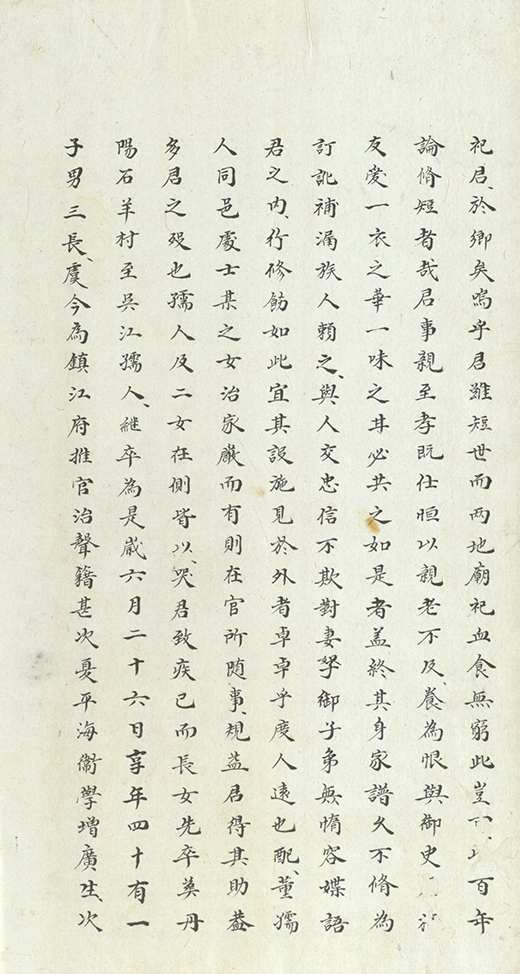 祀君於鄉矣嗚乎君雖短世而兩地廟祀血食無窮此豈百年
論脩短者哉君事親至孝既仕恒以親老不及養為恨與御史
友愛一衣之華一味之甘必共之如是者盖終其身家譜久不脩為
訂訛補漏族人頼之與人交忠信不欺對妻孥御子弟無惰容媟語
君之內行修飭如此宜其設施見於外者卓卓乎度人遠也配董孺
人同邑處士某之女治家嚴而有則在官所随事規益君得其助葢
多君之歿也孺人及二女在側皆以哭君致疾已而長女先卒奠丹
陽石羊村至吳江孺人繼卒為是歲六月二十六日享年四十有一
子男三長虞今為鎮江府推官治聲籍甚次夏平海衞學增廣生次